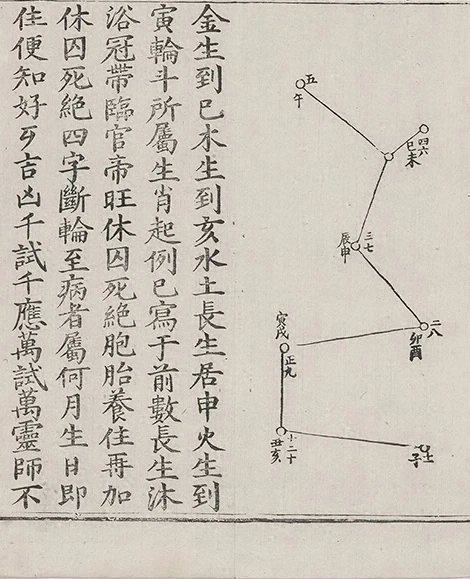 四六
巳未
五
午
三七
辰申
二八
卯酉
正九
寅戌
十二十
丑亥
子
金生到巳木生到亥水土長生居申火生到
寅輪斗所屬生肖起例已寫于前數長生沐
浴冠帶臨官帝旺休囚死絕胞胎養住再加
休囚死絕四字斷輪至病者屬何月生日即
住便知好歹吉凶千試千應萬試萬靈師不